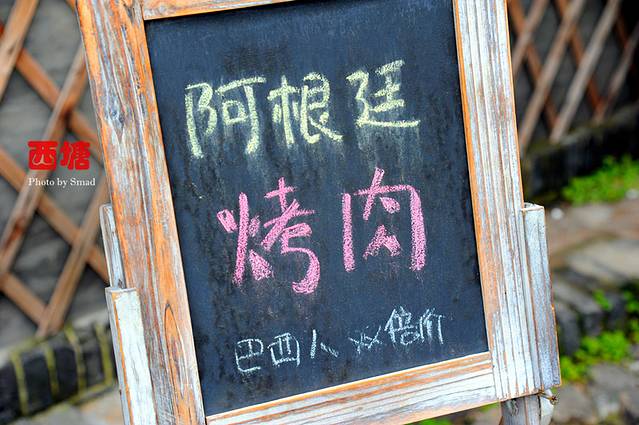 阿根廷
烤肉
巴西人双倍价
西塘
Photo by Smad